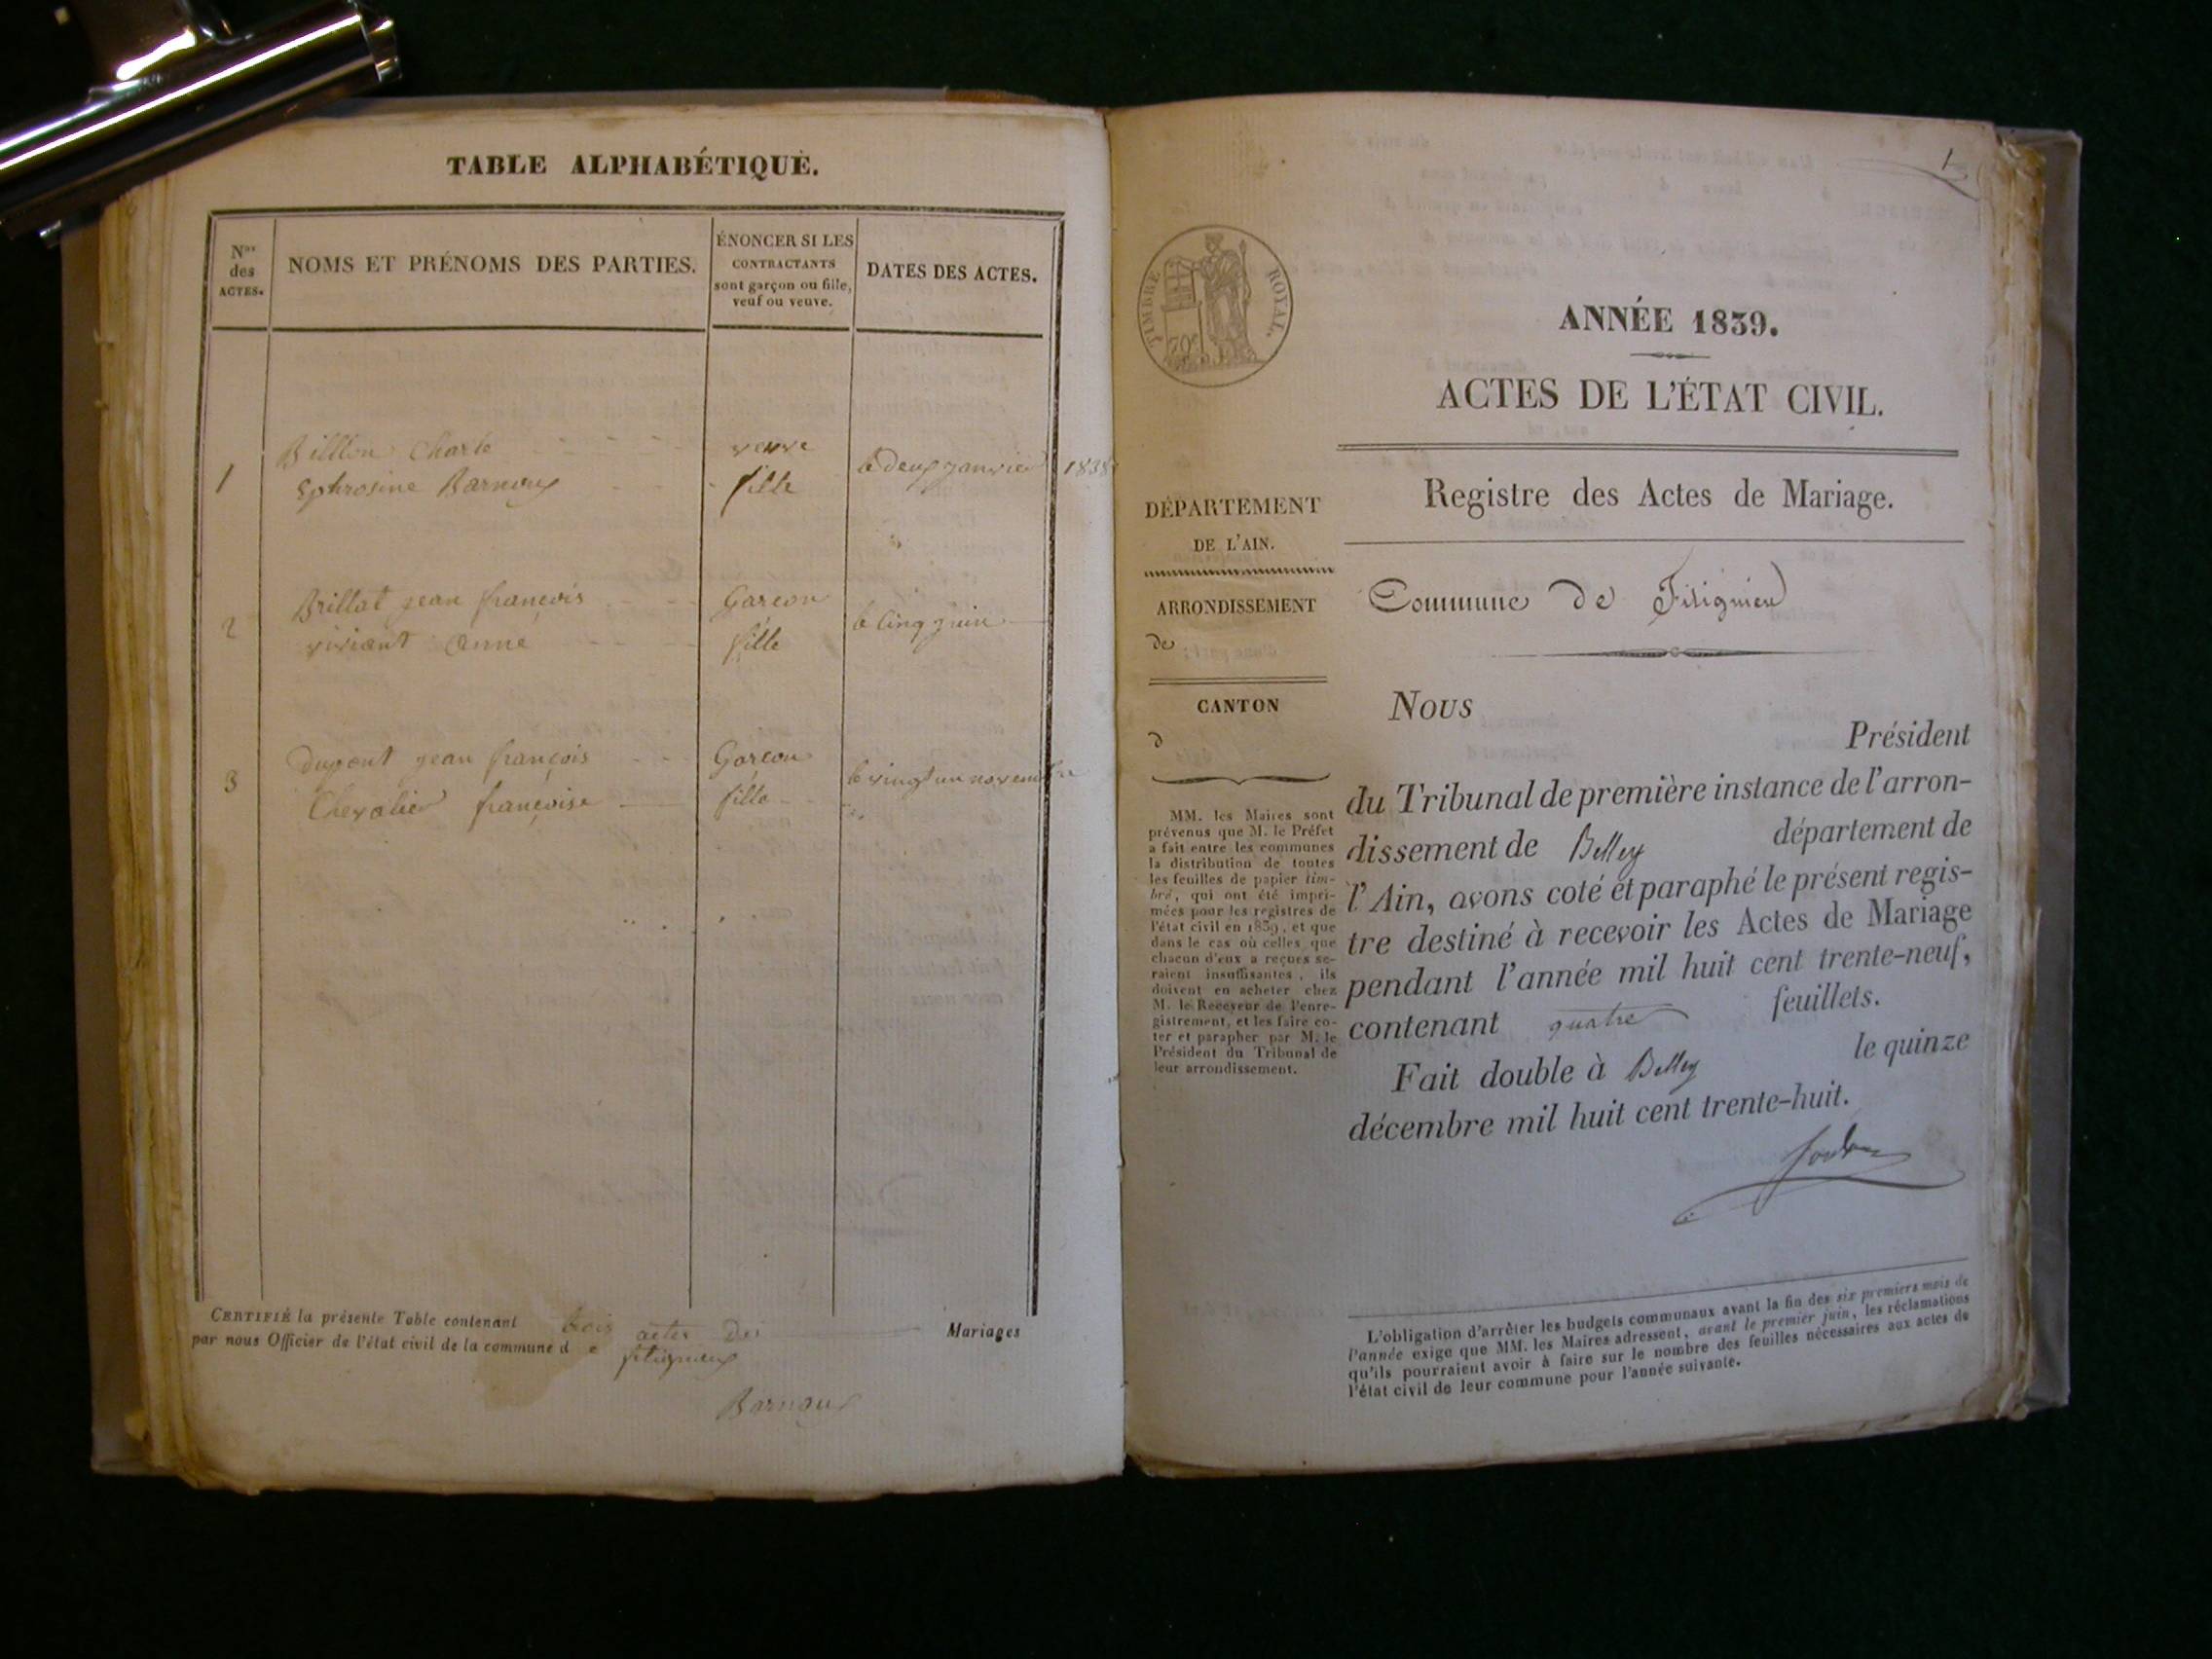 TABLE ALPHABÉTIQUE.
Nos
des
ACTES.
NOMS ET PRÉNOMS DES PARTIES.
ÉNONCER SI LES
CONTRACTANTS
sont garçon ou fille,
veuf ou veuve.
DATES DES ACTES.
1
Billion Charle
Ephrosine Barnoux
fille
le deux janvier 1838
2
Brillat jean françois
viviant anne
Garcon
fille
le cinq juin
3
dupont jean françois
Chevalier françoise
Garcon
fille
le vingt un novembre
CERTIFIÉ la présente Table contenant trois actes des Mariages
par nous Officier de l'état civil de la commune de
Barnoux
1
TIMBRE ROYAL.
70c
ANNÉE 1839.
ACTES DE L'ÉTAT CIVIL.
Registre des Actes de Mariage.
DÉPARTEMENT
DE L'AIN.
ARRONDISSEMENT
de
CANTON
d
MM. les Maires sont
prévenus que M. le Préfet
a fait entre les communes
la distribution de toutes
les feuilles de papier tim-
bré, qui ont été impri-
mées pour les registres de
l'état civil en 1839, et que
dans le cas où celles que
chacun d'eux a reçues se-
raient insuffisantes, ils
doivent en acheter chez
M. le Receveur de l'enre-
gistrement, et les faire co-
ter et parapher par M. le
Président du Tribunal de
leur arrondissement.
Commune de
Nous
Président
du Tribunal de première instance de l'arron-
dissement de Belley département de
l'Ain, avons coté et paraphé le présent regis-
tre destiné à recevoir les Actes de Mariage
pendant l'année mil huit cent trente-neuf,
contenant quatre feuillets.
Fait double à Belley le quinze
décembre mil huit cent trente-huit.
L'obligation d'arrêter les budgets communaux avant la fin des six premiers mois de
l'année exige que MM. les Maires adressent, avant le premier juin, les réclamations
qu'ils pourraient avoir à faire sur le nombre des feuilles nécessaires aux actes de
l'état civil de leur commune pour l'année suivante.